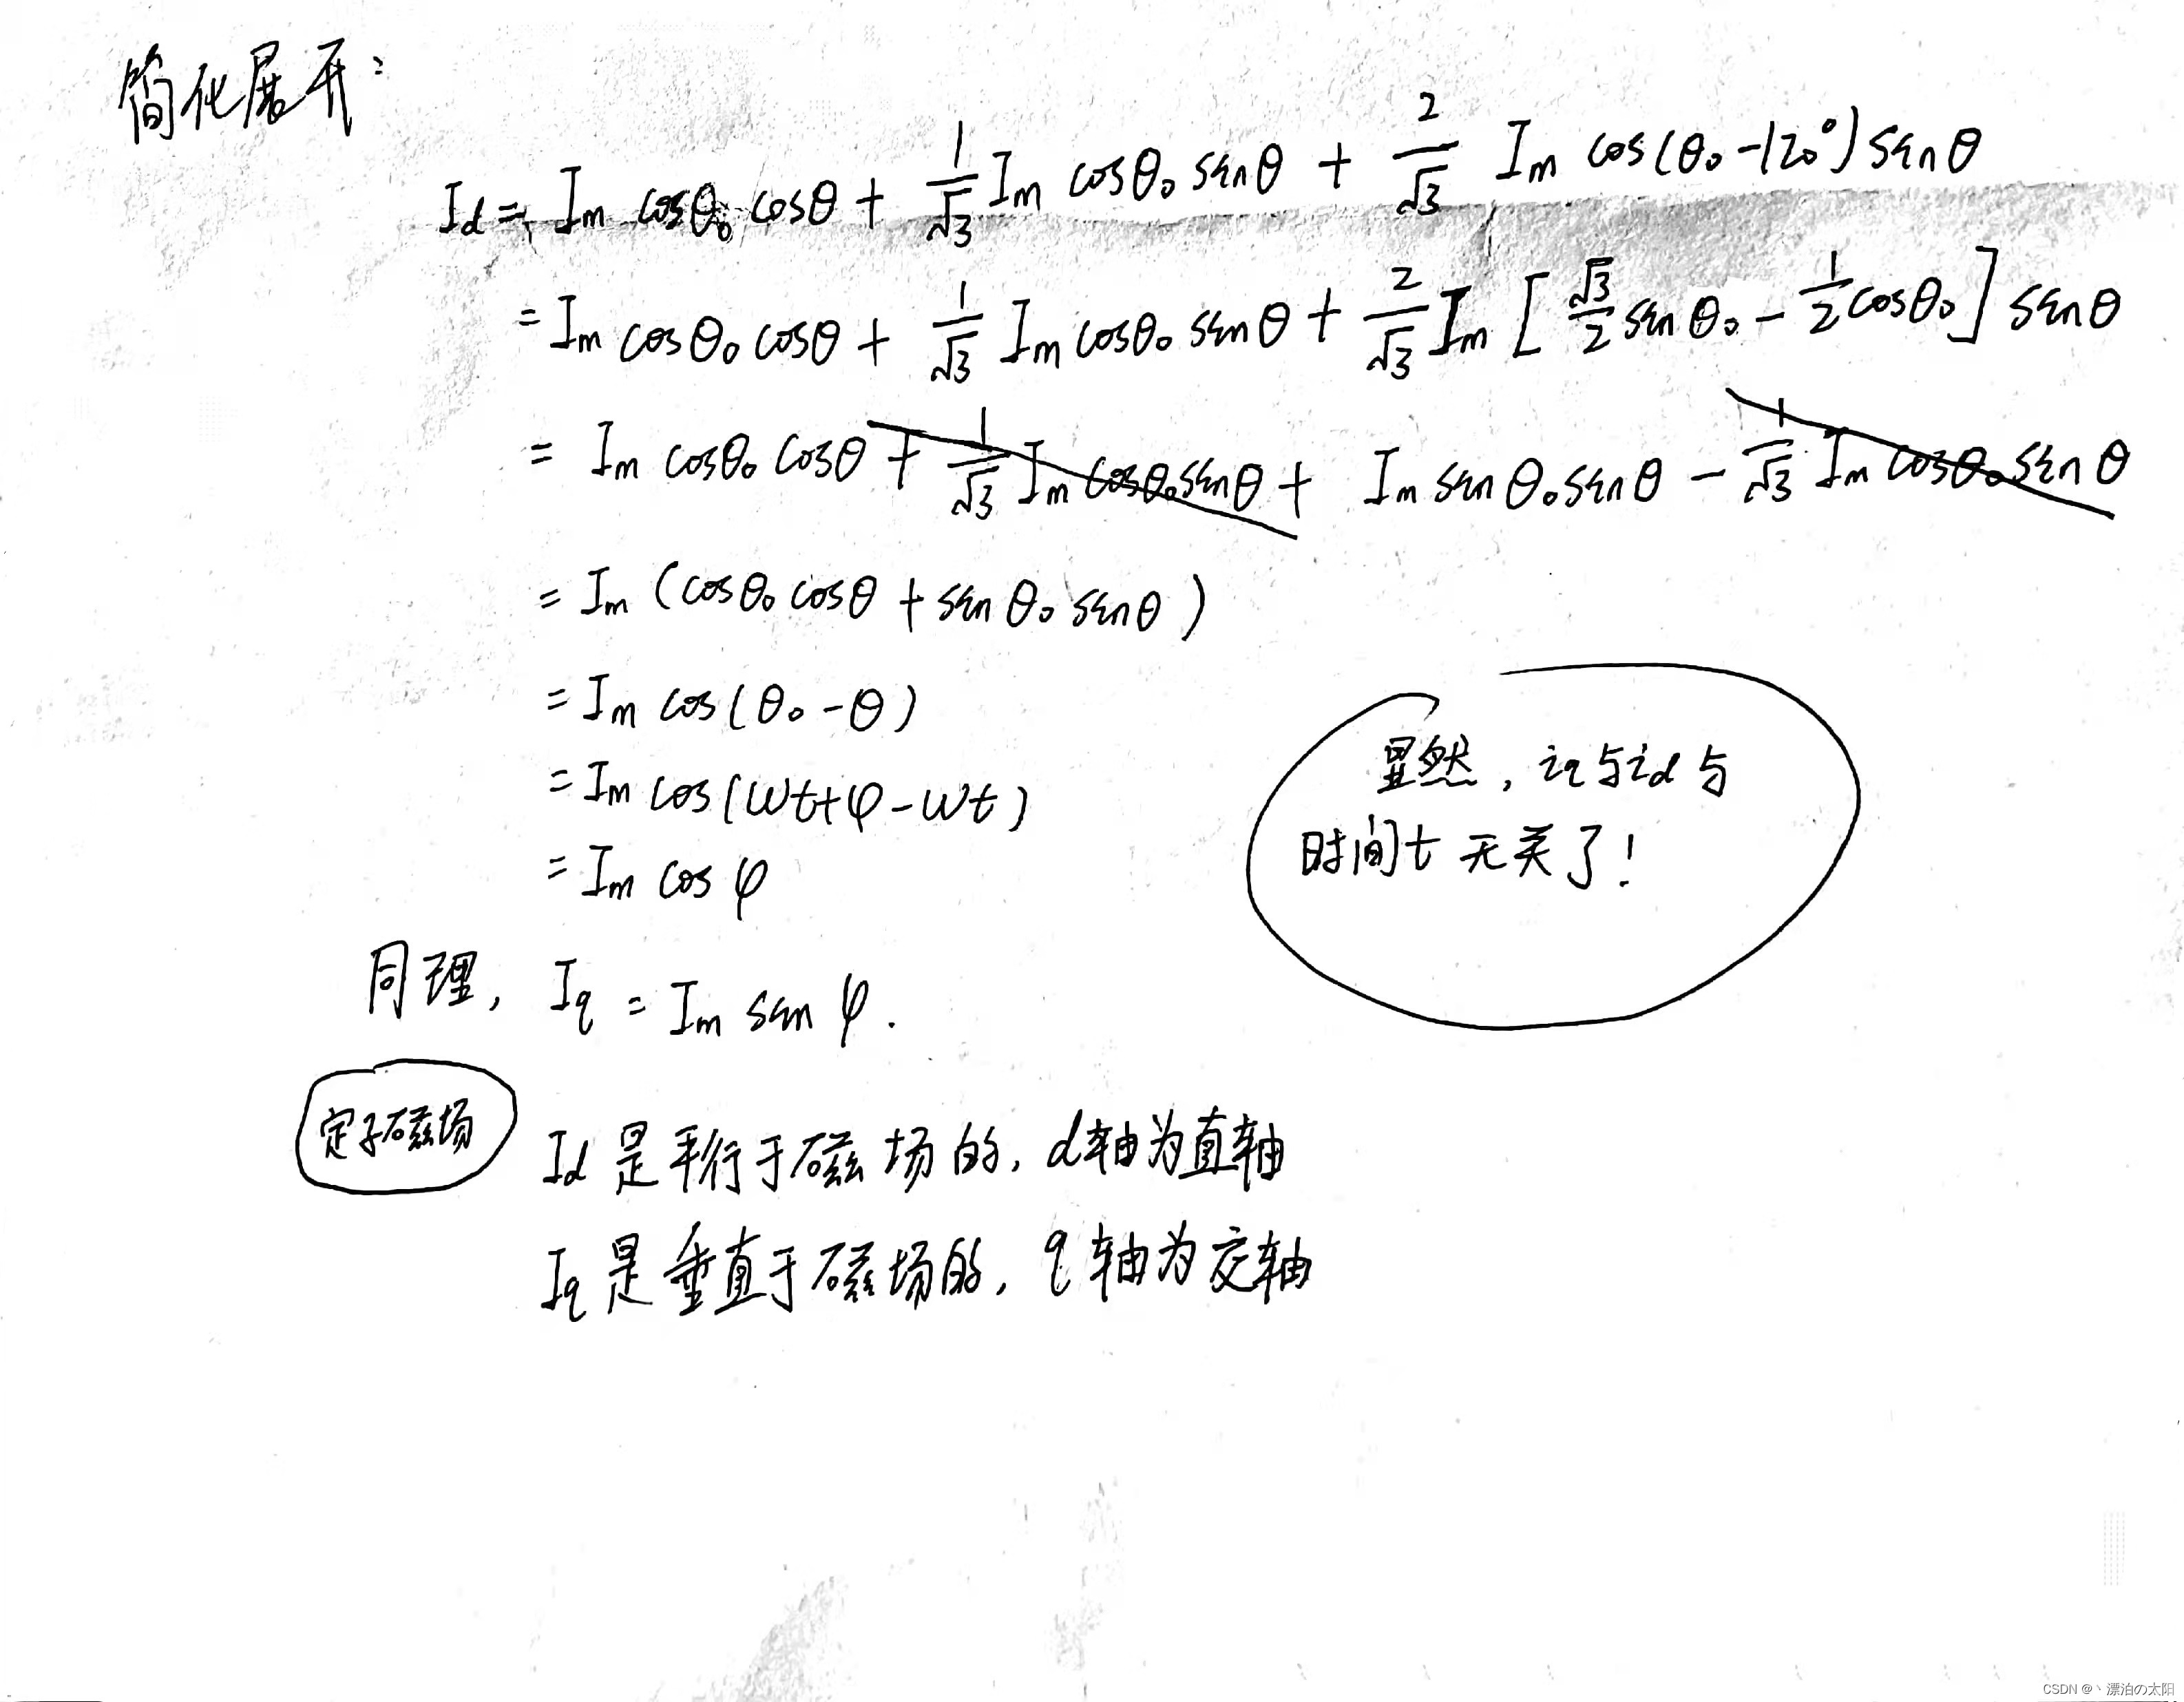 简化展开:
Id = Im cosθ₀ cosθ + 1/√3 Im cosθ₀ sinθ + 2/√3 Im cos(θ₀-120°) sinθ
= Im cosθ₀ cosθ + 1/√3 Im cosθ₀ sinθ + 2/√3 Im [√3/2 sinθ₀ - 1/2 cosθ₀] sinθ
= Im cosθ₀ cosθ + 1/√3 Im cosθ₀ sinθ + Im sinθ₀ sinθ - 1/√3 Im cosθ₀ sinθ
= Im (cosθ₀ cosθ + sinθ₀ sinθ)
= Im cos(θ₀-θ)
= Im cos(ωt+φ-ωt)
= Im cos φ
显然, iq与id与
时间t无关了!
同理, Iq = Im sin φ.
定子磁场
Id 是平行于磁场的, d轴为直轴
Iq 是垂直于磁场的, q轴为交轴
CSDN @丶漂泊の太阳